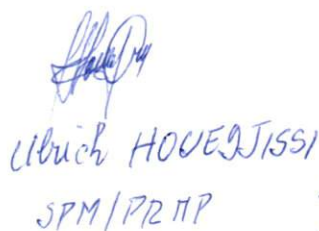 Ulrich HOUEDJISSI
SPM/PRMP